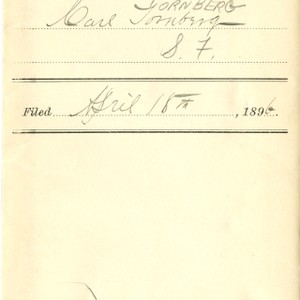 TORNBERG
Carl Tornberg
S. F.
Filed April 18th, 1896.